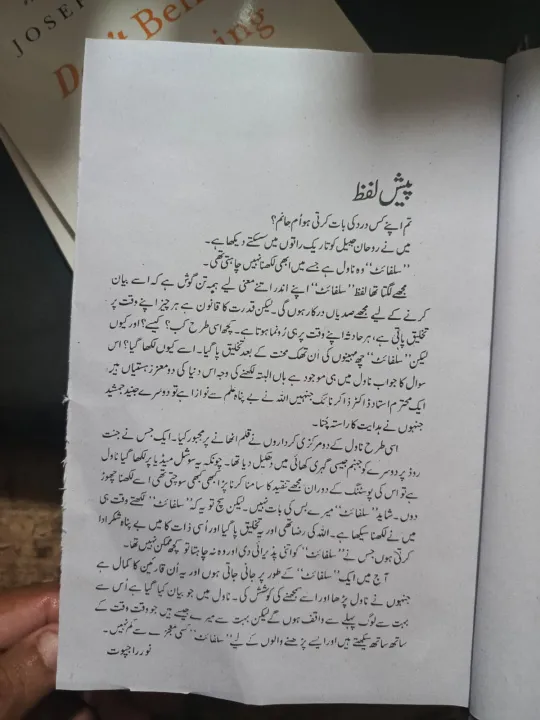 JOSEP
Don't Beli
ing
پیش لفظ
تم اپنے کس درد کی بات کرتی ہو اُم جانم؟
میں نے روحان جبیل کو تاریک راتوں میں سسکتے دیکھا ہے۔
”سلفائٹ“ وہ ناول ہے جسے میں ابھی لکھنا نہیں چاہتی تھی۔
مجھے لگتا تھا لفظ ”سلفائٹ“ اپنے اندر اتنے معنی لیے ہمہ تن گوش ہے کہ اسے بیان
کرنے کے لیے مجھے صدیاں درکار ہوں گی۔ لیکن قدرت کا قانون ہے ہر چیز اپنے وقت پر
تخلیق پاتی ہے، ہر حادثہ اپنے وقت پر ہی رُونما ہوتا ہے۔ کچھ اسی طرح کب؟ کیسے؟ اور کیوں
لیکن ”سلفائٹ“ چھ مہینوں کی اَن تھک محنت کے بعد تخلیق پا گیا۔ اسے کیوں لکھا گیا؟ اس
سوال کا جواب ناول میں ہی موجود ہے ہاں البتہ لکھنے کی وجہ اس دنیا کی دو معزز ہستیاں ہیں
ایک محترم استاد ڈاکٹر ذاکر نائک جنہیں اللہ نے بے پناہ علم سے نوازا ہے تو دوسرے جنید جمشید
جنہوں نے ہدایت کا راستہ چنا۔
اسی طرح ناول کے دو مرکزی کرداروں نے قلم اٹھانے پر مجبور کیا۔ ایک جس نے جنت
روڈ پر دوسرے کو جہنم جیسی گہری کھائی میں دھکیل دیا تھا۔ چونکہ یہ سوشل میڈیا پر لکھا گیا ناول
ہے تو اس کی پوسٹنگ کے دوران مجھے تنقید کا سامنا کرنا پڑا کبھی کبھی سوچتی تھی اسے لکھنا چھوڑ
دوں۔ شاید ”سلفائٹ“ میرے بس کی بات نہیں۔ لیکن سچ تو یہ کہ ”سلفائٹ“ لکھتے وقت ہی
میں نے لکھنا سیکھا ہے۔ اللہ کی رضا تھی اور یہ تخلیق پا گیا اور اُسی ذات کا میں بے پناہ شکر ادا
کرتی ہوں جس نے ”سلفائٹ“ کو اتنی پذیرائی دی اور وہ نہ چاہتا تو کچھ ممکن نہیں تھا۔
آج میں ایک ”سلفائٹ“ کے طور پر جانی جاتی ہوں اور یہ اُن قارئین کا کمال ہے
جنہوں نے ناول پڑھا اور اسے سمجھنے کی کوشش کی۔ ناول میں جو بیان کیا گیا ہے اُس سے
بہت سے لوگ پہلے سے واقف ہوں گے لیکن بہت سے میرے جیسے ہیں جو وقت وقت کے
ساتھ ساتھ سیکھتے ہیں اور ایسے پڑھنے والوں کے لیے ”سلفائٹ“ کسی معجزے سے کم نہیں۔
نور راجپوت